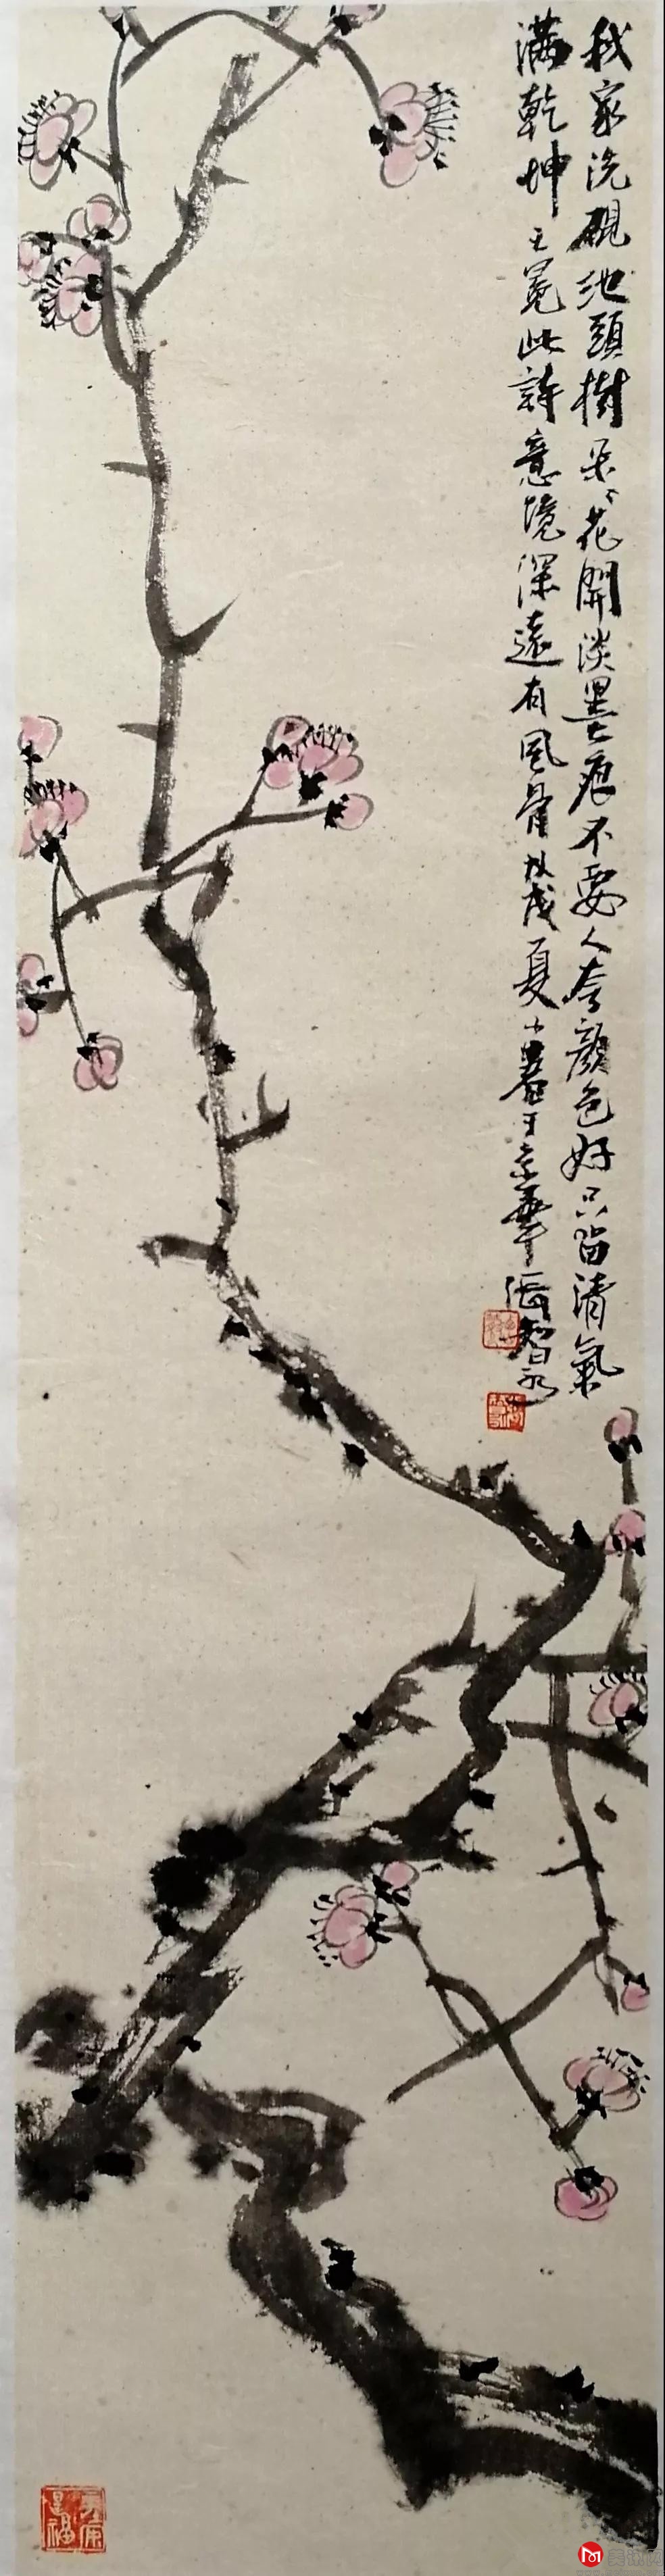 我家洗硯池頭樹朵々花開淡墨痕不要人夸顏色好只留清氣
滿乾坤王冕此詩意境深遠有風骨戊戌夏小暑于京華張智永